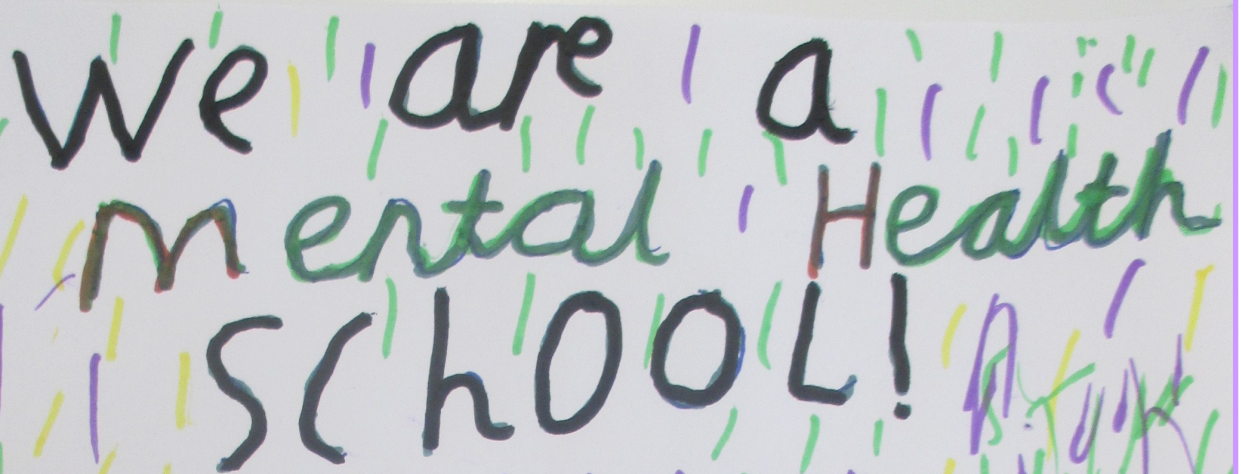 We are a
Mental Health
SChOOL!